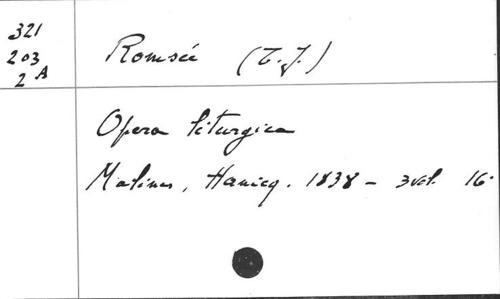 321
203
2 A
Romsée (T.J.)
Opera liturgica
Malines, Hanicq. 1838 - 3 vol. 16°